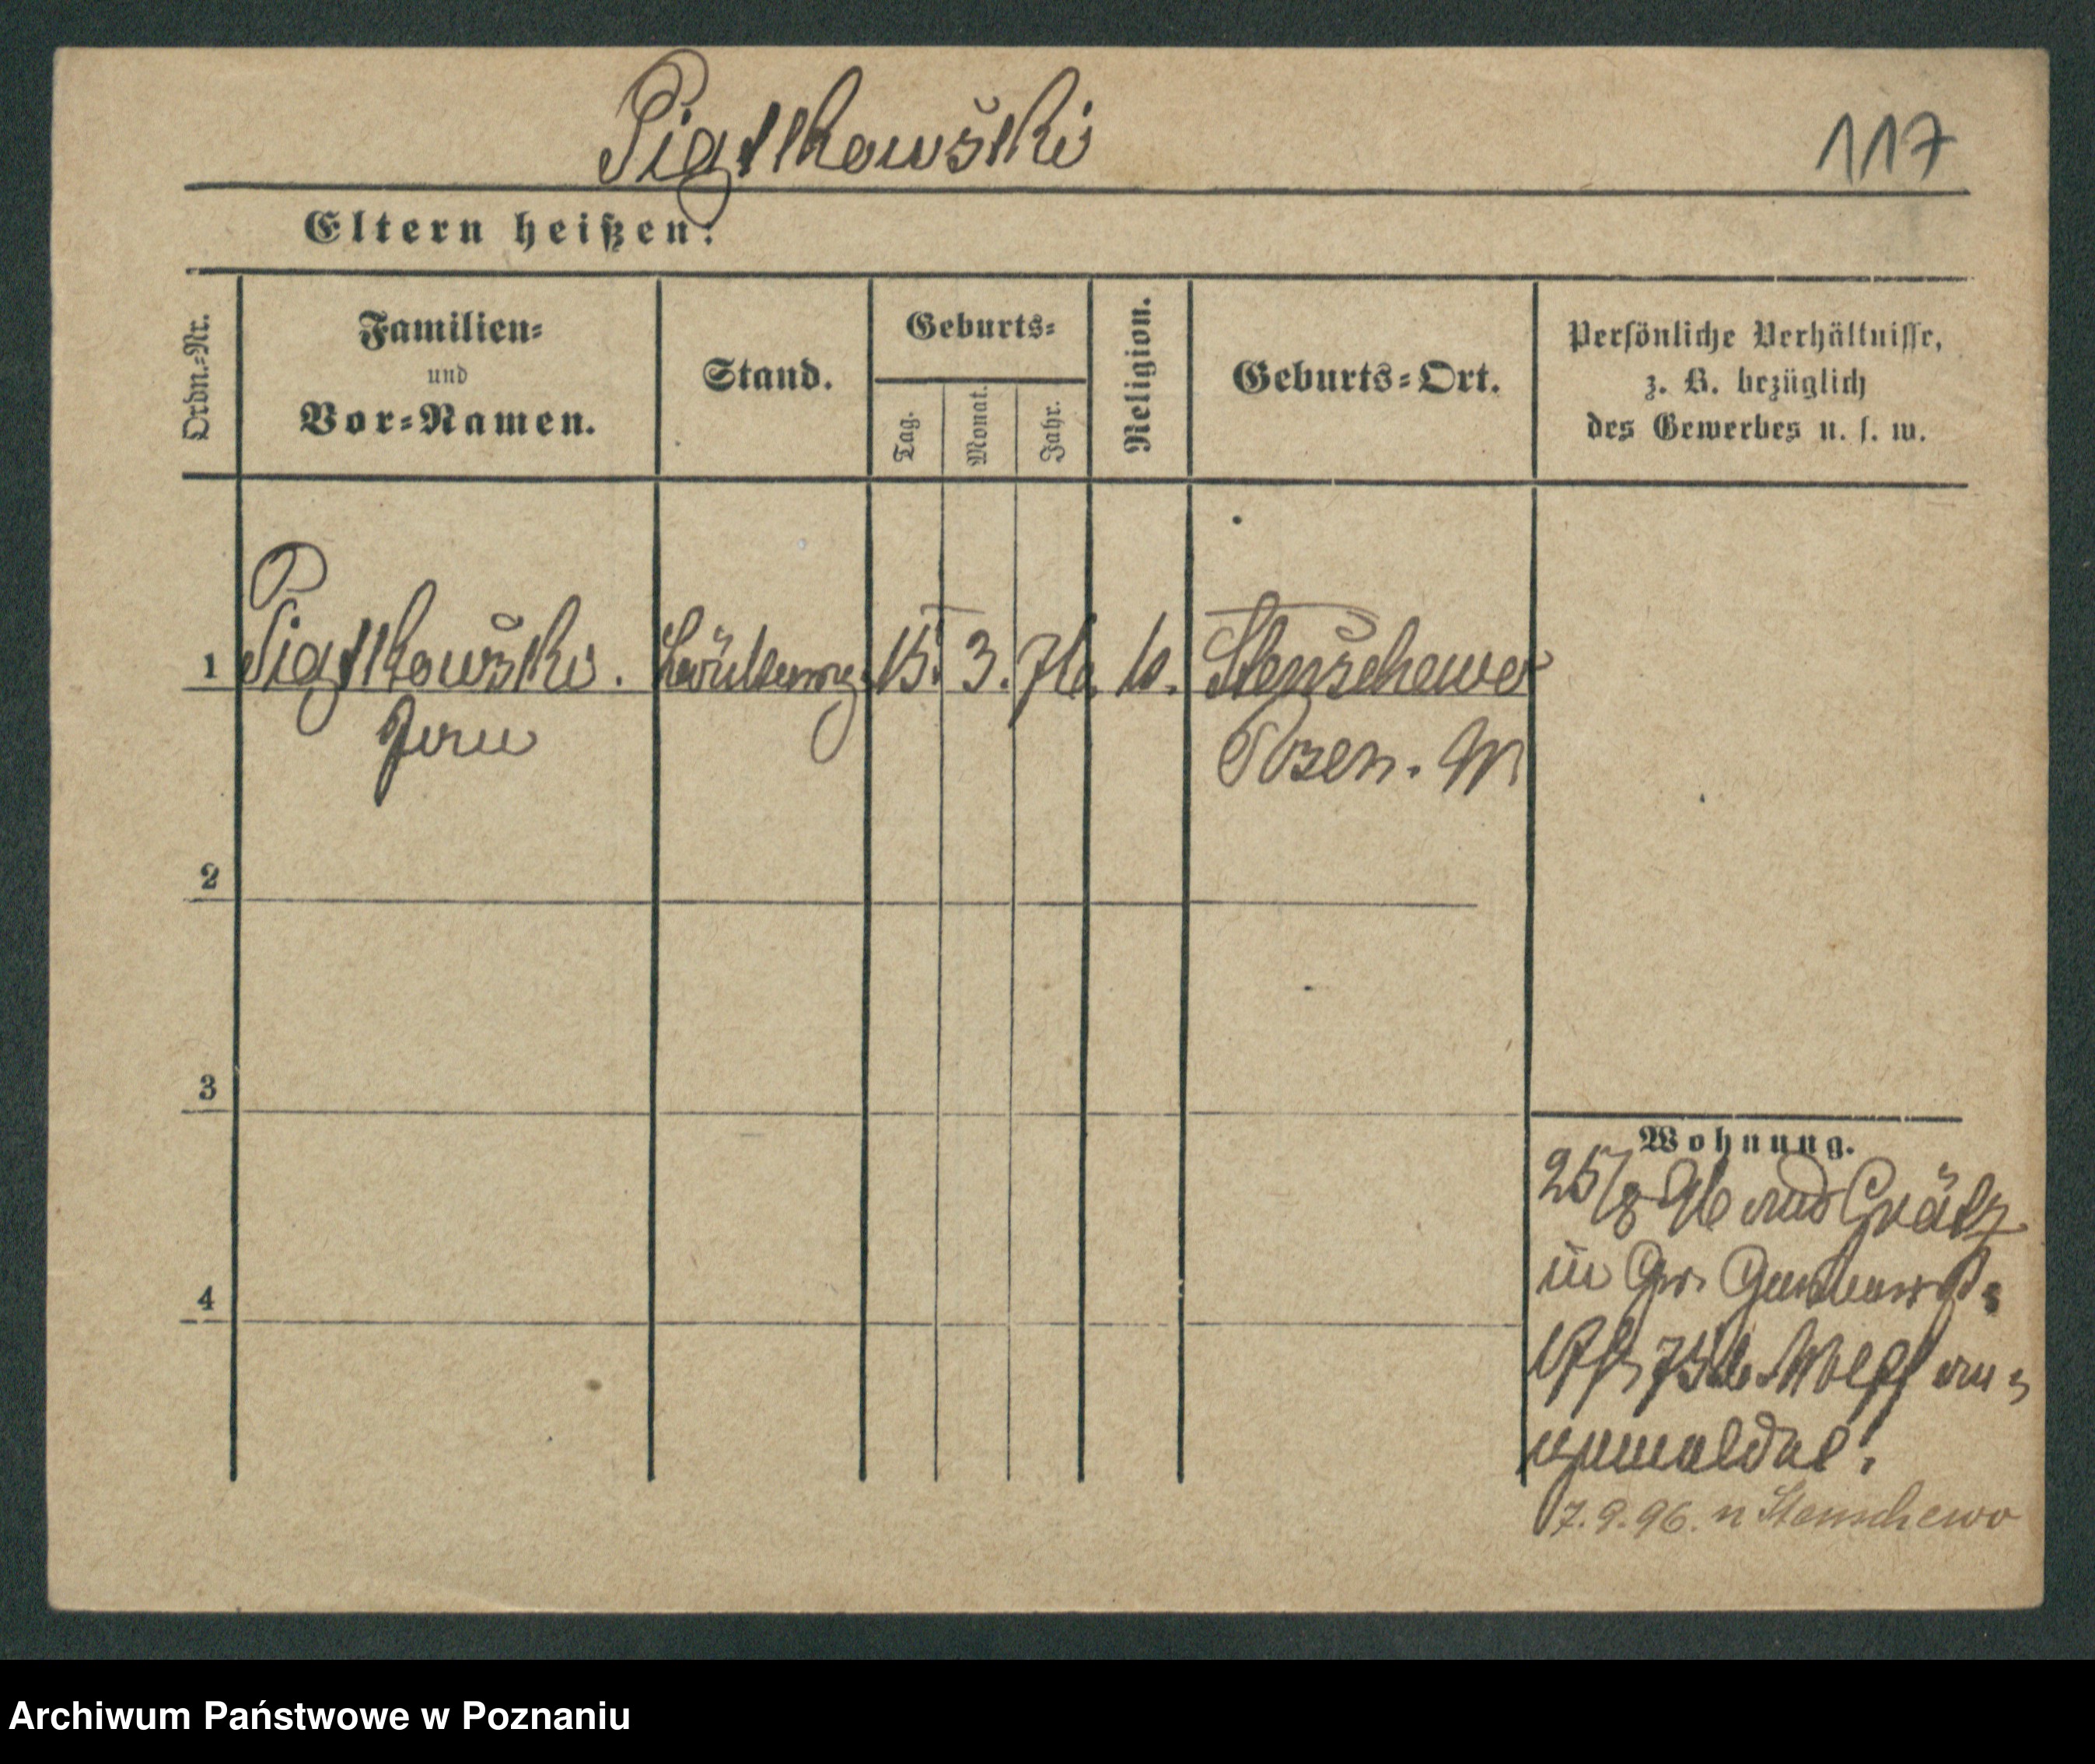 Piątkowski
117
Eltern heißen:
Ordn.-Nr.
Familien-
und
Vor-Namen.
Stand.
Geburts-
Tag.
Monat.
Jahr.
Religion.
Geburts-Ort.
Persönliche Verhältnisse,
z. B. bezüglich
des Gewerbes u. s. w.
1
Piątkowski. 15. 3. 76. k. Stenschewo
Posen. W
2
3
4
Wohnung.
25/8 96 aus Grätz
in
7.9.96. n Stenschewo
Archiwum Państwowe w Poznaniu